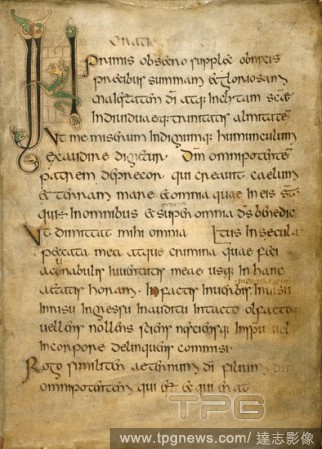 Oratio
In primis obsecro supplex obnixis
praecibus summam & gloriosam
maiestatem di atq: inclitam scae
indiuiduaeq: trinitatis almitate
Ut me miserum indignumq: humunculum
exaudire dignetur Dm omnipotente
patrem depraecor qui creauit caelum
& terram mare & omnia quae in eis st
qui in omnibus & super omnia ds benedic
Ut dimittat mihi omnia tus in secula
peccata mea atque crimina quae feci
cunabulis iuuentutis meae usq: in hanc
aetatis horam. In factis in uerbis
in uisu ingressu in auditu in tactu olfactoq:
uellens nollens sciens nesciensq: in spu uel
in corpore delinquens commisi.
Rogo similiter aeternum di filium
omnipotentem qui & qui erat
TPG
www.tpgnews.com/達志影像